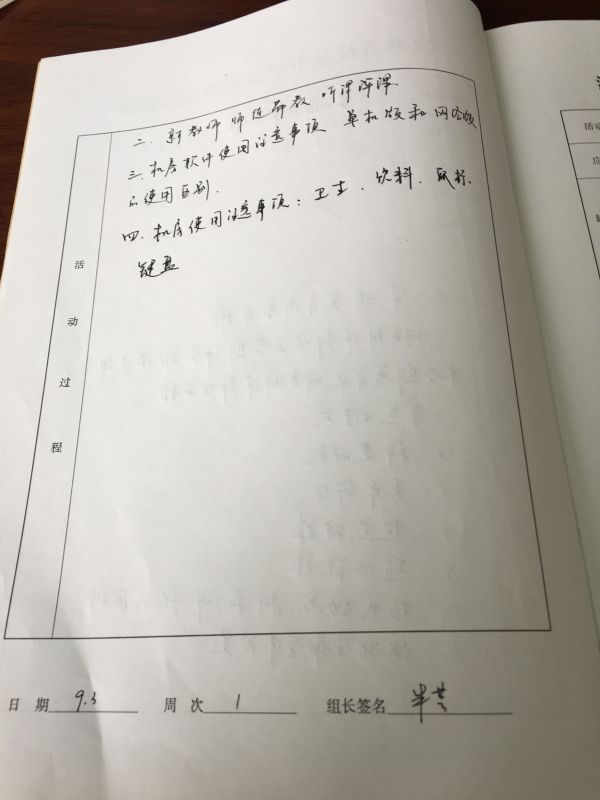 二. 新教师 师徒帮教 听课评课.
三. 机房软件使用注意事项 单机版和网络版
的使用区别.
四. 机房使用注意事项：卫生、饮料、鼠标、
键盘
活动过程
日 期 9.3 周 次 1 组长签名
活动